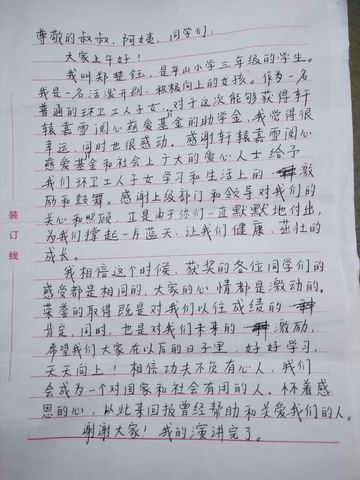 尊敬的叔叔,阿姨,同学们:
大家上午好!
我叫郑楚钰,是平山小学三年级的学生。
我是一名活泼开朗,积极向上的女孩。作为一名
普通的环卫工人子女,对于这次能够获得轩
辕嘉雪阅心慈爱基金的助学金,我觉得很
幸运,同时也很感动。感谢轩辕嘉雪阅心
慈爱基金和社会上广大的爱心人士给予
我们环卫工人子女学习和生活上的一种激
励和鼓舞。感谢上级部门和领导对我们的
关心和照顾,正是由于你们一直默默地付出,
为我们撑起一片蓝天,让我们健康,茁壮的
成长。
我相信这个时候,获奖的各位同学们的
感受都是相同的,大家的心情都是激动的。
荣誉的取得既是对我们以往成绩的一种
肯定,同时,也是对我们未来的一种激励,
希望我们大家在以后的日子里,好好学习,
天天向上!相信功夫不负有心人,我们
会成为一个对国家和社会有用的人。怀着感
恩的心,以此来回报曾经帮助和关爱我们的人。
谢谢大家!我的演讲完了。
装订线